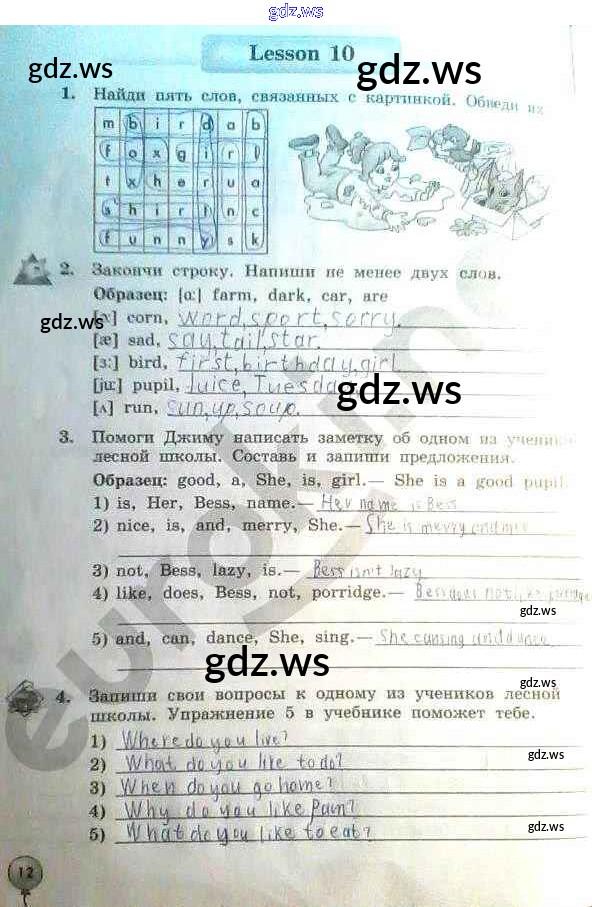 gdz.ws
Lesson 10
gdz.ws
gdz.ws
1. Найди пять слов, связанных с картинкой. Обведи их
m b i r d a b
f o x g i r l
t x h e r u a
s h i r t n c
f u n n y s k
2. Закончи строку. Напиши не менее двух слов.
Образец: [ɑ:] farm, dark, car, are
gdz.ws
[ɔ] corn, word, sport, sorry.
[æ] sad, say, tail, star.
[ɜ:] bird, first, birthday, girl
[ju:] pupil, juice, Tuesday
gdz.ws
[ʌ] run, sun, up, soup.
3. Помоги Джиму написать заметку об одном из учеников
лесной школы. Составь и запиши предложения.
Образец: good, a, She, is, girl.— She is a good pupil
1) is, Her, Bess, name.— Her name is Bess
2) nice, is, and, merry, She.— She is merry and nice
3) not, Bess, lazy, is.— Bess isn't lazy
4) like, does, Bess, not, porridge.— Bess does not like porridge
gdz.ws
5) and, can, dance, She, sing.— She can sing and dance
gdz.ws
gdz.ws
4. Запиши свои вопросы к одному из учеников лесной
школы. Упражнение 5 в учебнике поможет тебе.
1) Where do you live?
2) What do you like to do?
gdz.ws
3) When do you go home?
4) Why do you like Pam?
5) What do you like to eat?
gdz.ws
12
euroki.net